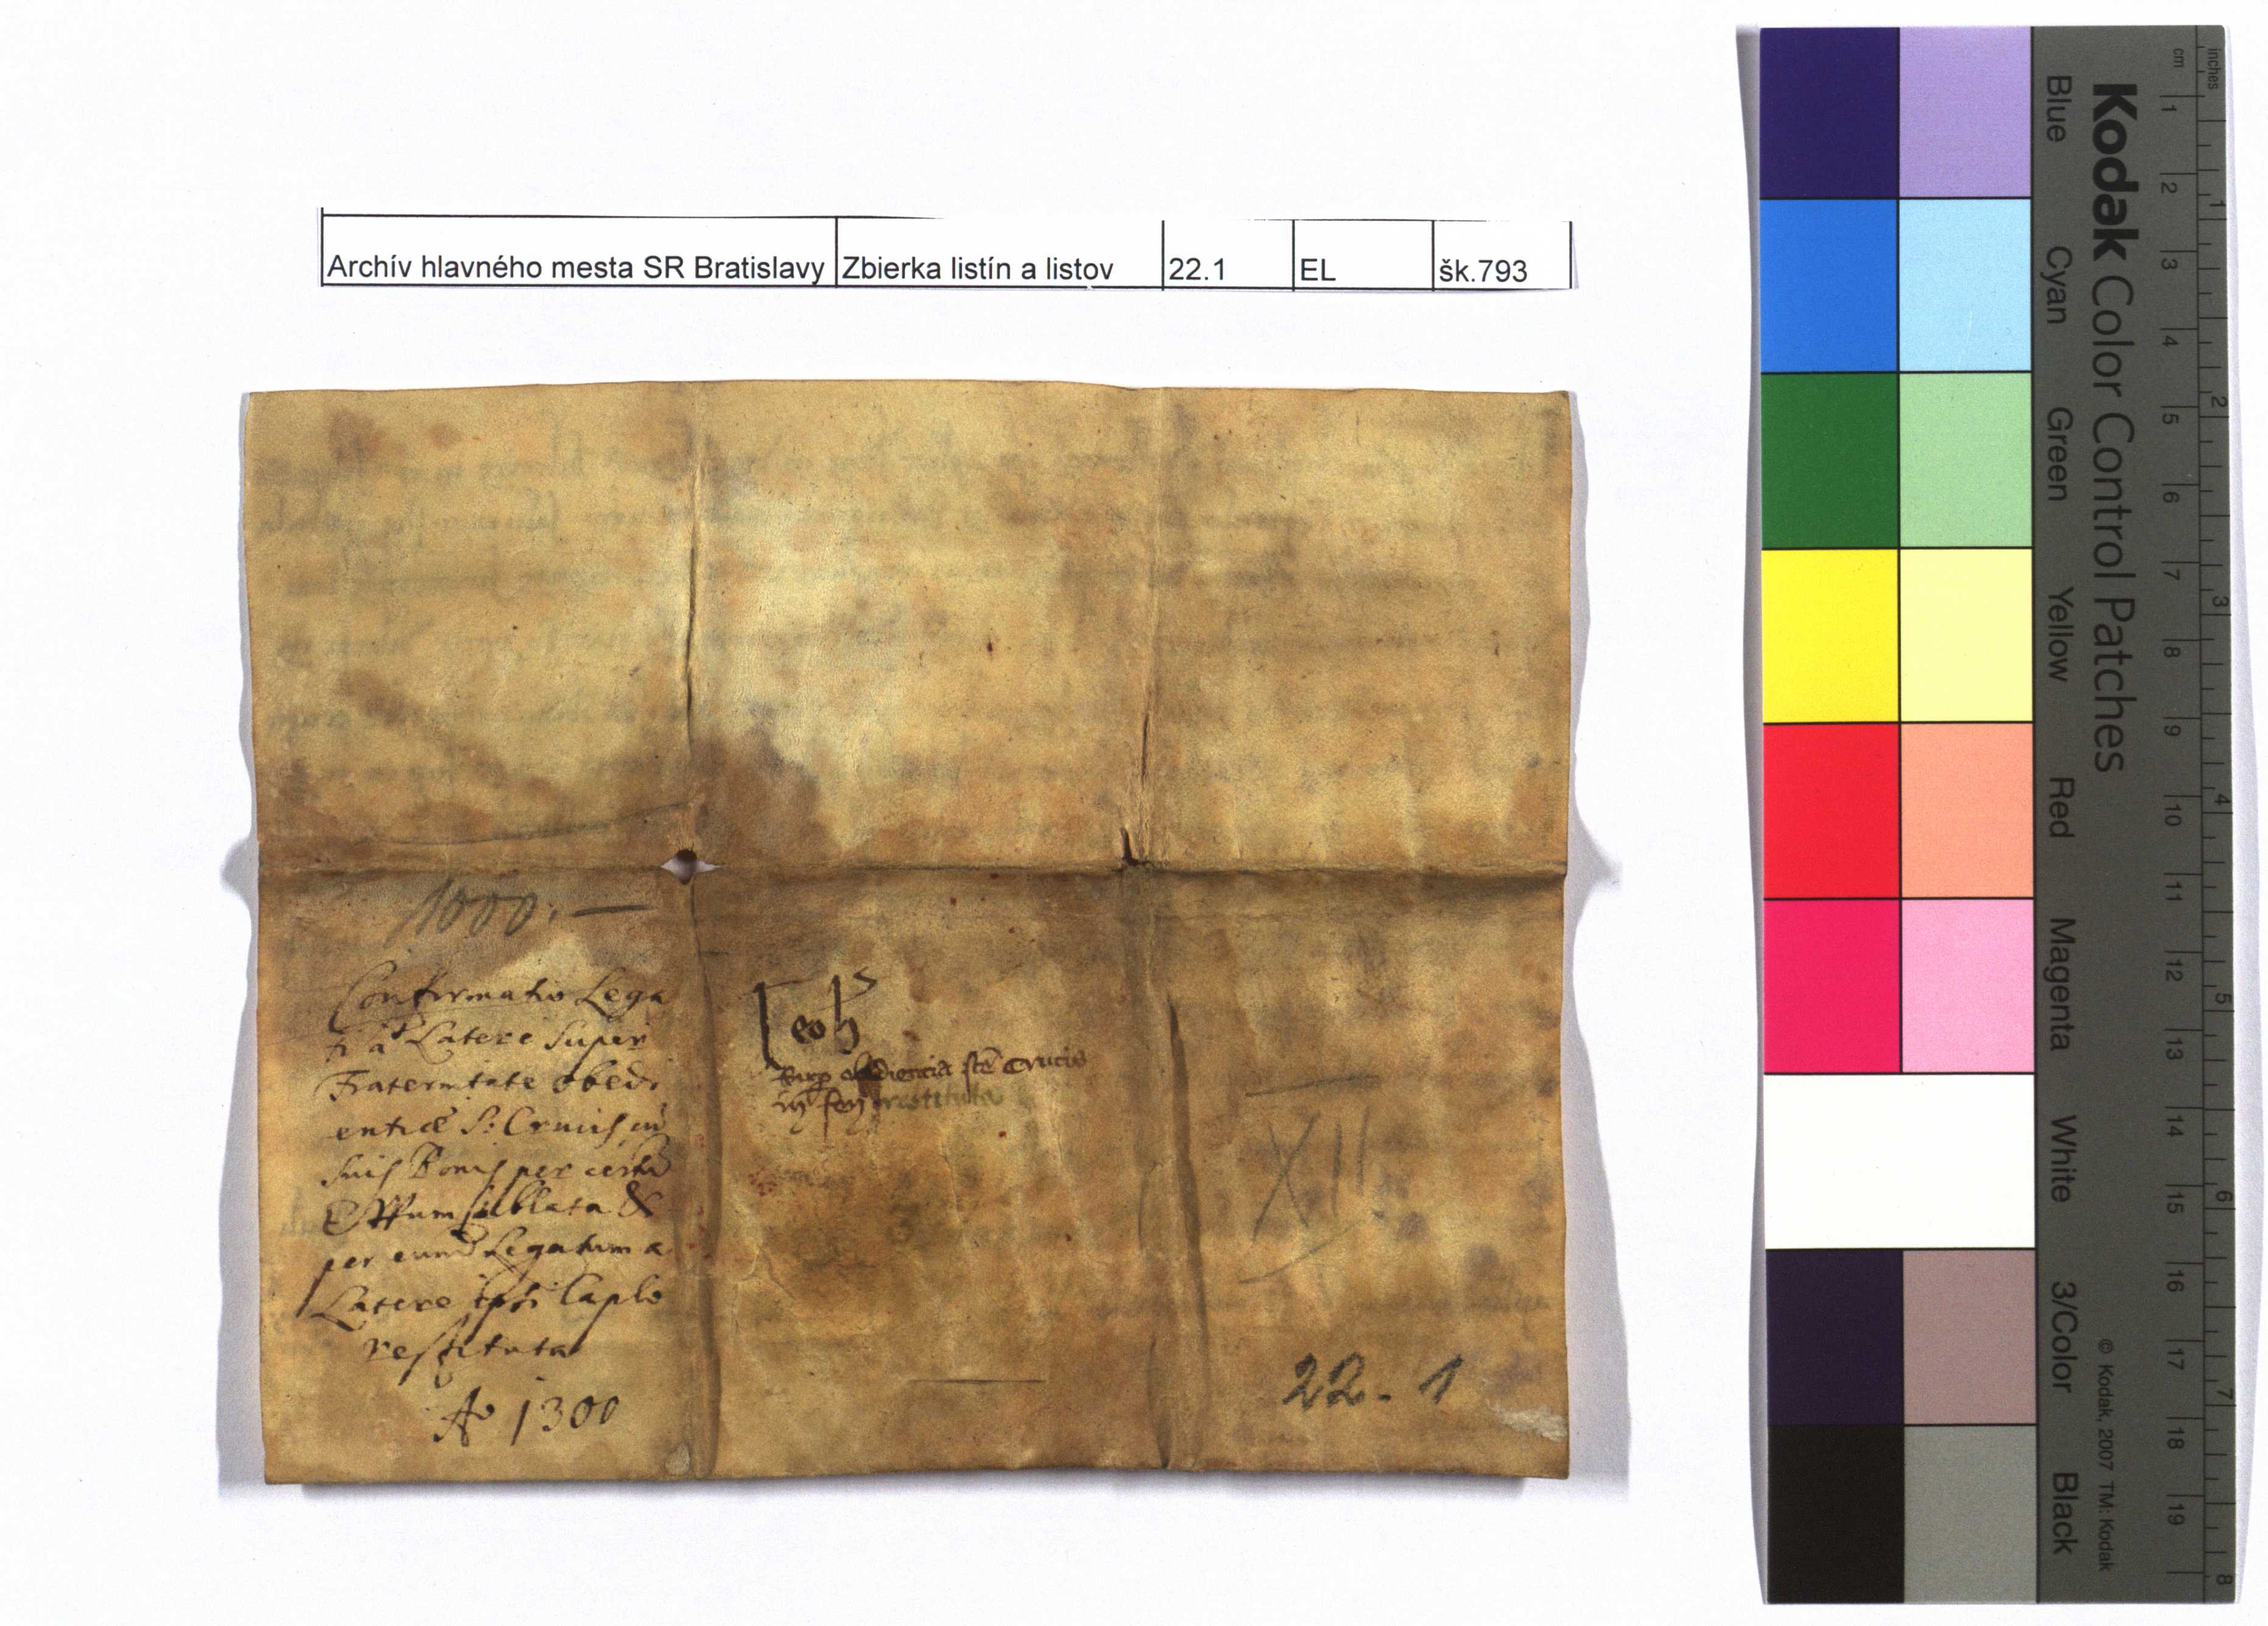 Archív hlavného mesta SR Bratislavy Zbierka listín a listov 22.1 EL šk.793
1000.—
Confirmatio Lega
ti a Latere super
Fraternitate obedi
entiæ S: Crucis in
suis Bonis per certũ
sublata &
per eund Legatum a
Latere ipsi Caplo
restituta
Ao 1300
obediencia ste Crucis
restituta
XII
22. 1
Kodak Color Control Patches
Blue Cyan Green Yellow Red Magenta White 3/Color Black
© Kodak, 2007 TM: Kodak
inches 1 2 3 4 5 6 7 8
cm 1 2 3 4 5 6 7 8 9 10 11 12 13 14 15 16 17 18 19